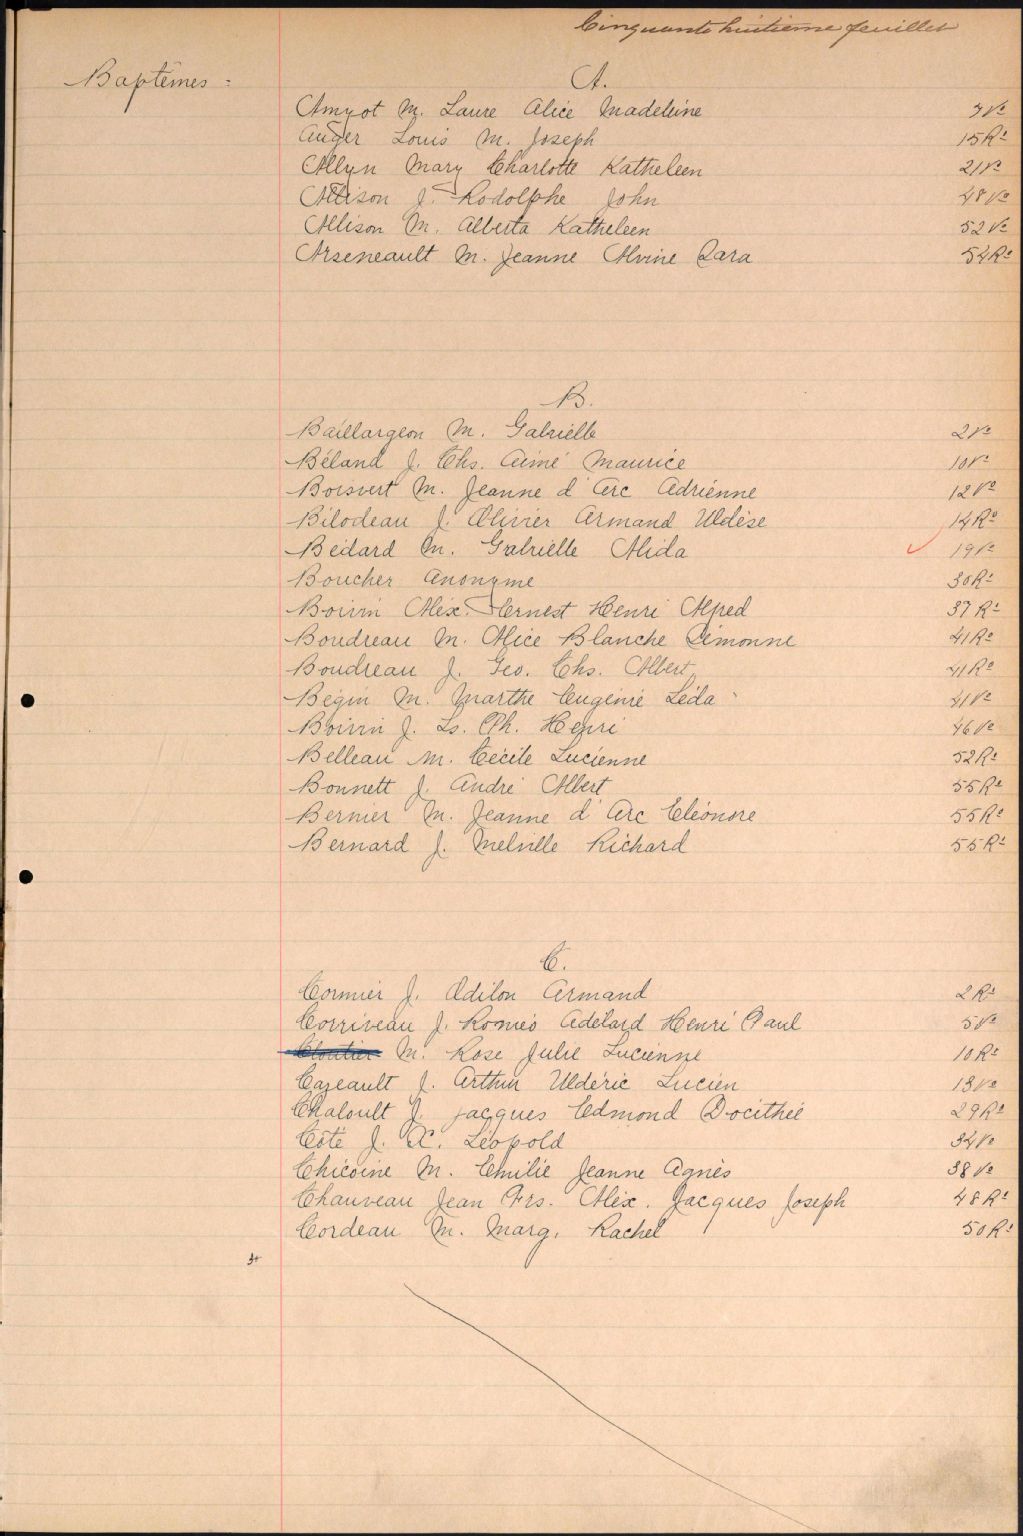 Cinquante huitième feuillet
Baptêmes =
A.
Amyot M. Laure Alice Madeleine 3 Vo
Auger Louis M. Joseph 15 Ro
Allyn Mary Charlotte Katheleen 21 Vo
Allison J. Rodolphe John 48 Vo
Allison M. Alberta Katheleen 52 Vo
Arseneault M. Jeanne Alvine 54 Ro
B.
Baillargeon M. Gabrielle 2 Vo
Béland J. Chs. Aimé Maurice 10 Vo
Boisvert M. Jeanne d'Arc Adrienne 12 Vo
Bilodeau J. Olivier Armand 14 Ro
Bédard M. Gabrielle Alida 19 Vo
Boucher Anonyme 30 Ro
Boivin Alex. Ernest Henri Alfred 37 Ro
Boudreau M. Alice Blanche Simonne 41 Ro
Boudreau J. Geo. Chs. Albert 41 Ro
Bégin M. Marthe Eugénie Léda 41 Vo
Boivin J. Ls. Ph. Henri 46 Vo
Belleau M. Cécile Lucienne 52 Ro
Bonnett J. André Albert 55 Ro
Bernier M. Jeanne d'Arc Eléonore 55 Ro
Bernard J. Melville Richard 55 Ro
C.
Cormier J. Odilon Armand 2 Ro
Corriveau J. Roméo Adélard Henri Paul 5 Vo
Cloutier M. Rose Julie Lucienne 10 Ro
Cazeault J. Arthur Uldéric Lucien 13 Vo
Chaloult J. Jacques Edmond Docithée 29 Ro
Côté J. X. Léopold 34 Vo
Chicoine M. Emilie Jeanne Agnès 38 Vo
Chauveau Jean Frs. Alex. Jacques Joseph 48 Ro
Cordeau M. Marg. Rachel 50 Ro